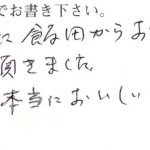 でお書き下さい。
に 飯田からお
頂きました
本当においしい